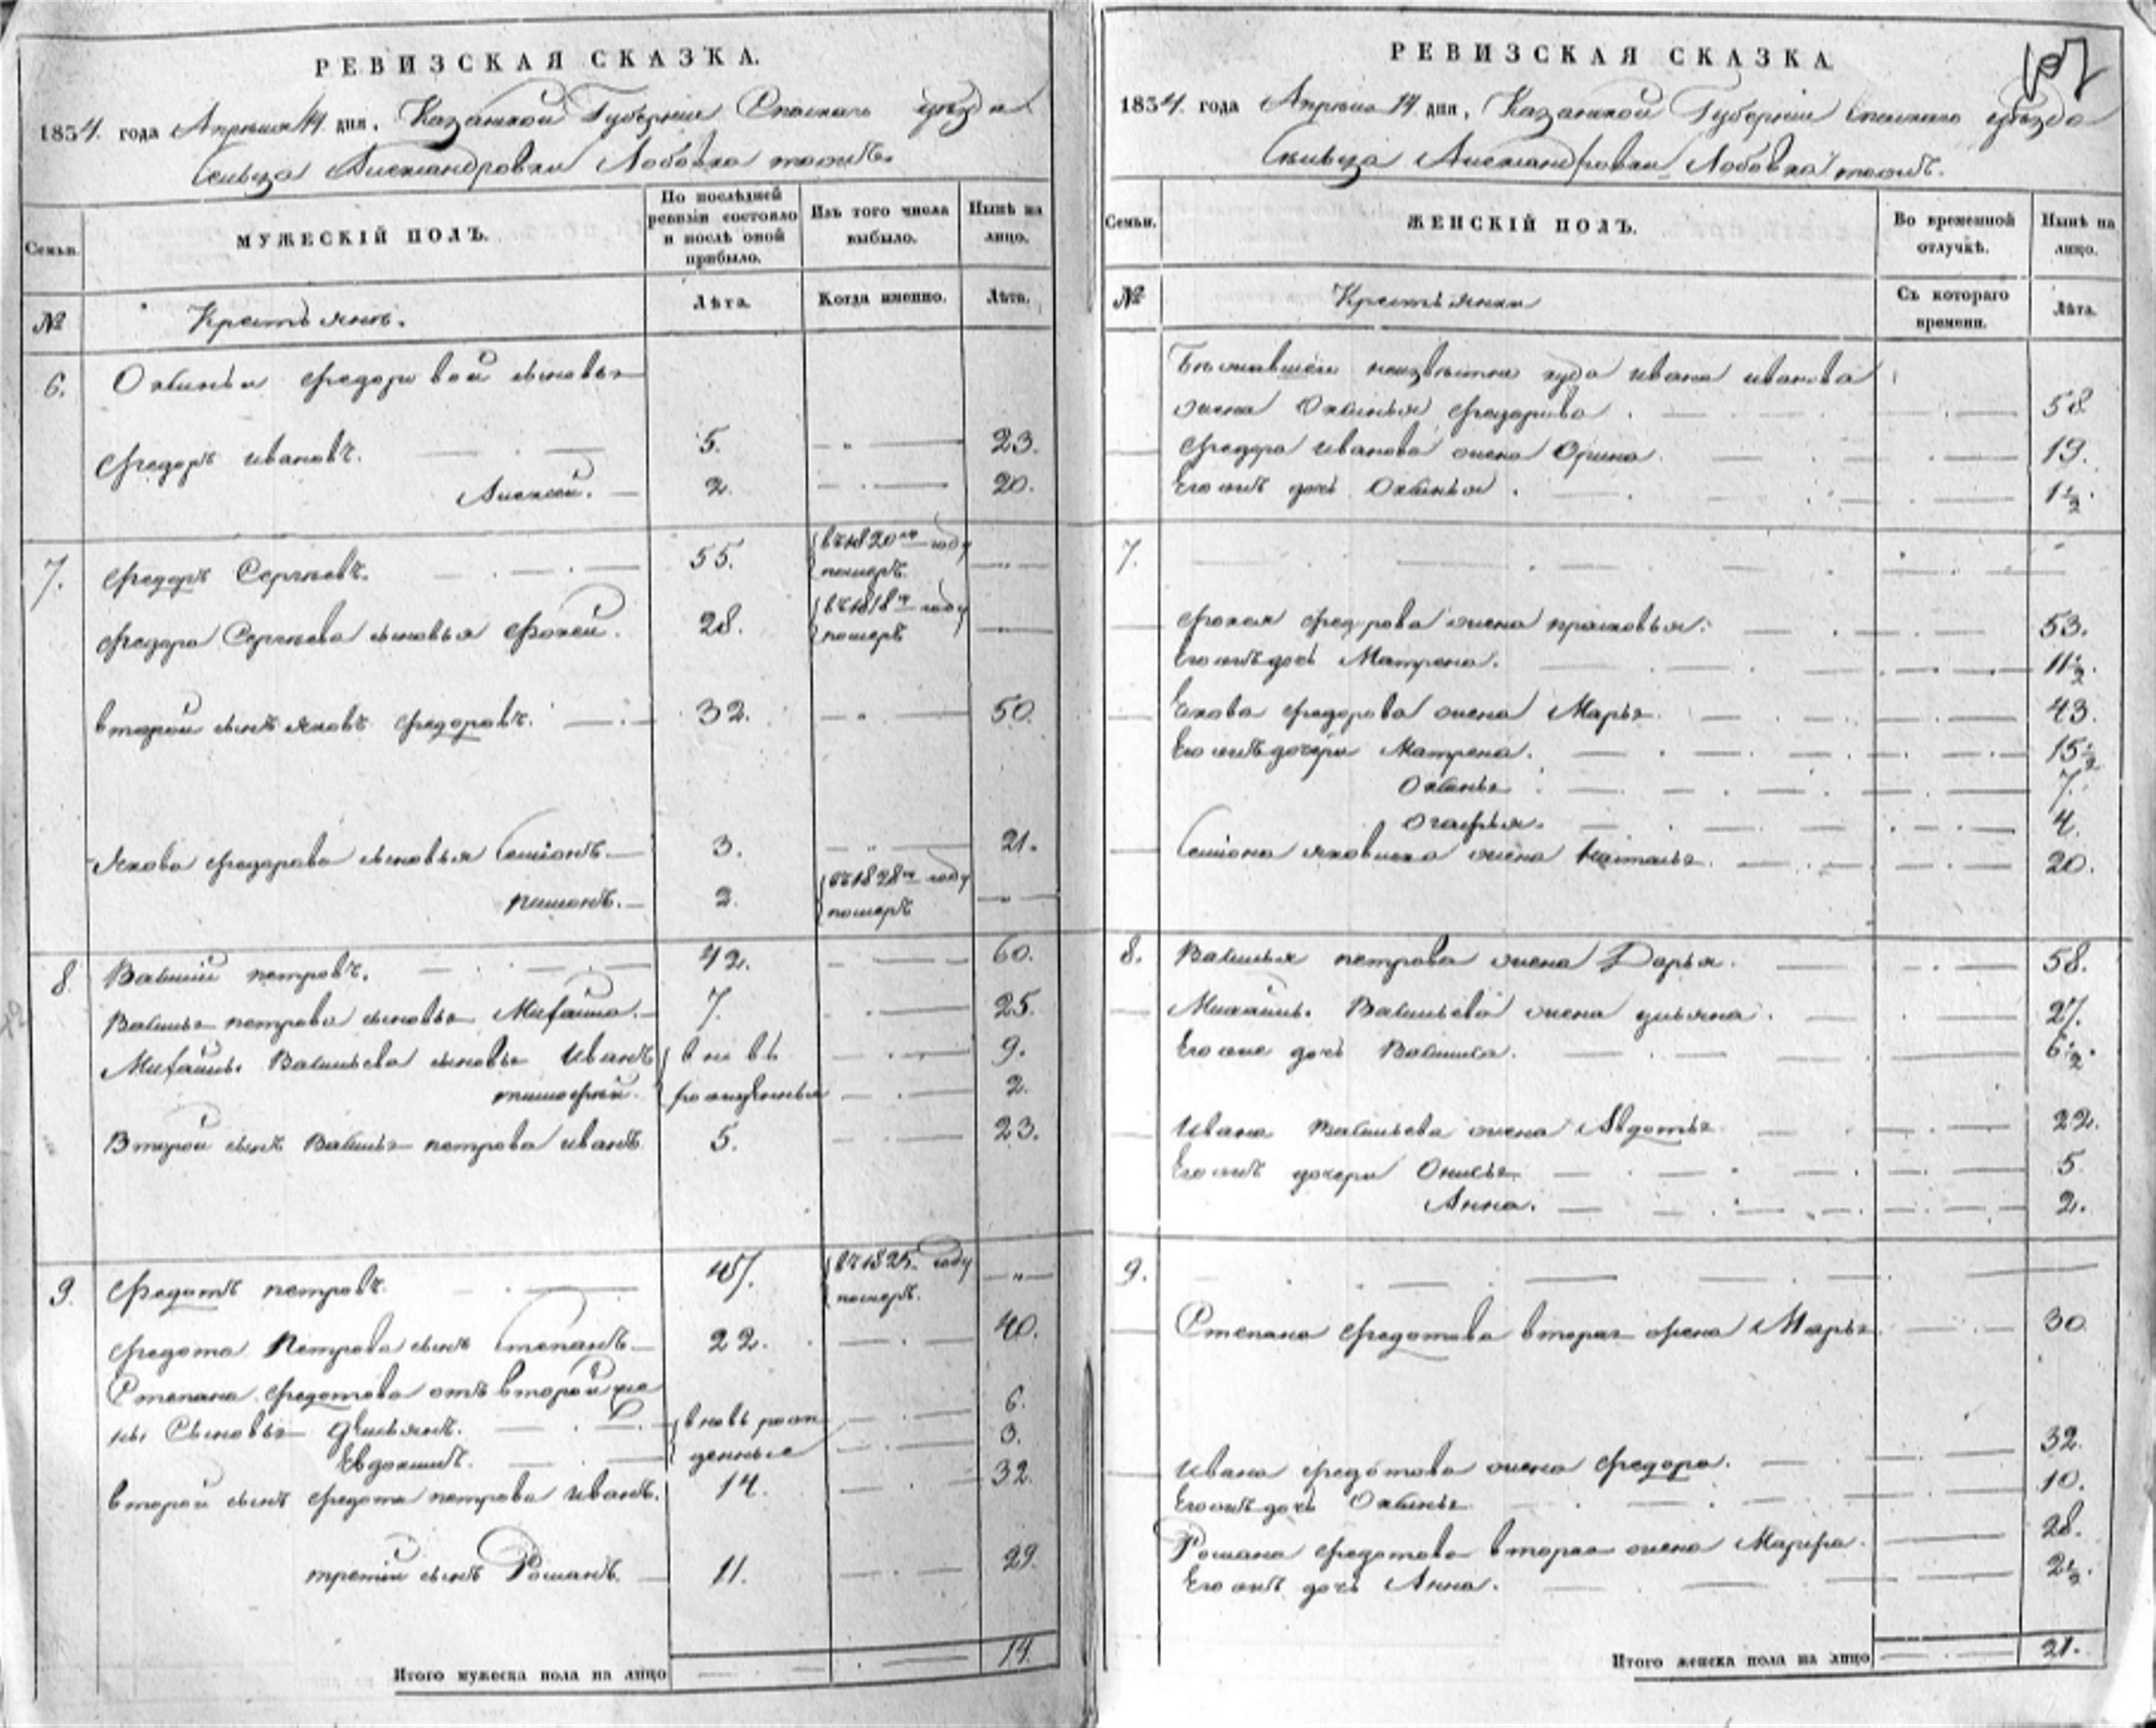 РЕВИЗСКАЯ СКАЗКА.
1834. года Апреля 14 дня, Казанской Губернии Спаскаго уезда
Сельца Александровки Лобовка тожъ.
Семьи.
МУЖЕСКІЙ ПОЛЪ.
По послѣдней ревизіи состояло и послѣ оной прибыло.
Изъ того числа выбыло.
Нынѣ на лицо.
№
Крестьянъ.
Лѣта.
Когда именно.
Лѣта.
6. Федоровой сыновья
Федоръ Ивановъ. 5. 23.
Алексей. 2. 20.
7. Федоръ Сергѣевъ. 55. въ 1820мъ году
померъ
Федора Сергѣева сыновья Фокей. 28. въ 1818м году
померъ
второй сынъ Яковъ Федоровъ. 32. 50.
Якова Федорова сыновья Семіонъ. 3. 21.
2. въ 1828м году
померъ
8. Василий Петровъ. 42. 60.
Василья Петрова сыновья Михайла. 7. 25.
Михайлы Васильева сыновья Иванъ вновь 9.
тимофей. рожденныя 2.
Второй сынъ Василья Петрова Иванъ 5. 23.
9. Федотъ Петровъ. 45. въ 1825. году
померъ.
Федота Петрова сынъ Степанъ 22. 40.
Степана Федотова отъ второй же
ны Сыновья Демьянъ. вновь рож 6.
Евдокимъ. денные 3.
второй сынъ Федота Петрова Иванъ. 14. 32.
третий сынъ Романъ. 11. 29.
Итого мужеска пола на лицо 14.
РЕВИЗСКАЯ СКАЗКА
1834. года Апреля 14 дня, Казанской Губернии Спаскаго уезда
Сельца Александровки Лобовка тожъ.
Семьи.
ЖЕНСКІЙ ПОЛЪ.
Во временной отлучкѣ.
Нынѣ на лицо.
№
Крестьянки
Съ котораго времени.
Лѣта.
Бежавшего неизвестно куда Ивана Иванова
жена Федорова. 58
Федора Иванова жена Орина. 19.
Его жъ дочь 1 1/2.
7.
Фокея Федорова жена Прасковья. 53.
Его жъ дочь Матрена. 11 1/2.
Якова Федорова жена Марья. 43.
Его жъ дочери Матрена. 15 1/2
7.
Огафья. 4.
Семіона Яковлева жена Наталья. 20.
8. Василья Петрова жена Дарья. 58.
Михайлы Васильева жена Ульяна. 27.
Его же дочь Василиса. 6 1/2.
Ивана Васильева жена Авдотья 22.
Его жъ дочери Онисья 5
Анна. 2.
9.
Степана Федотова вторая жена Марья 30
Ивана Федотова жена Федора. 32.
Его жъ дочь 10.
Романа Федотова вторая жена Марфа. 28.
Его жъ дочь Анна. 2 1/2.
Итого женска пола на лицо 21.